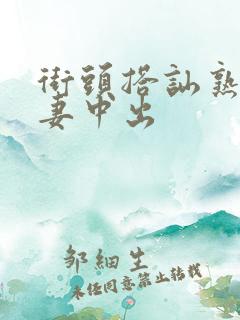 街頭搭訕熟
妻中出
邹細生
未经同意禁止转载